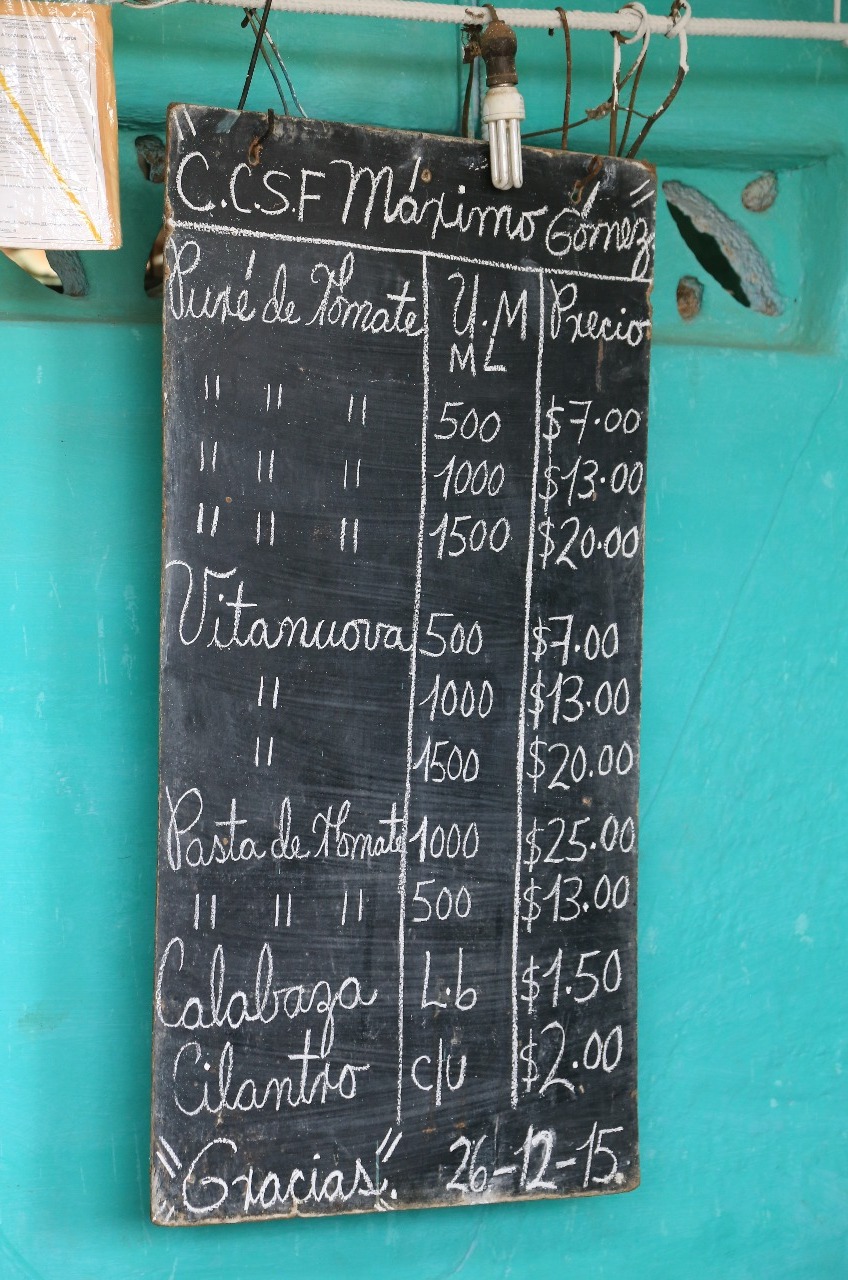 "C.C.S.F Máximo Gómez"
Puré de Tomate U.M Precio
ML
" " " 500 $7.00
" " " 1000 $13.00
" " " 1500 $20.00
Vitanuova 500 $7.00
" 1000 $13.00
" 1500 $20.00
Pasta de Tomate 1000 $25.00
" " " 500 $13.00
Calabaza L.b $1.50
Cilantro c/u $2.00
"Gracias". 26-12-15.